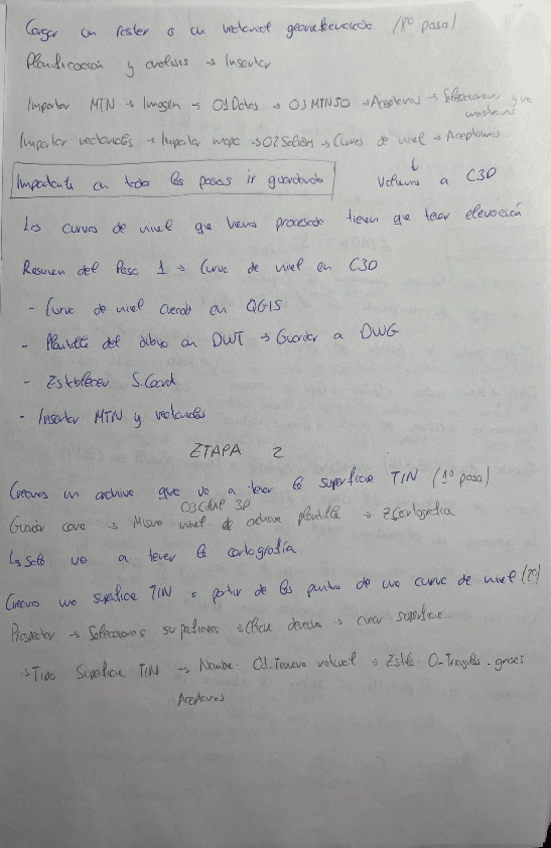 Cargar un raster o un vectorial georreferenciado (8º paso)
Planificación y análisis → Insertar
Importar MTN → Imagen → 01 Datos → 03 MTN50 → Aceptamos → Seleccionamos que
Importar vectoriales → Importar mapa → 02 Salidas → Curvas de nivel → Aceptamos
↓
Importante en todos los pasos ir guardando
Volvemos a C3D
Las curvas de nivel que hemos procesado tienen que tener elevación
Resumen del Paso 1 → Curva de nivel en C3D
- Curva de nivel creada en QGIS
- Plantilla del dibujo en DWT → Guardar a DWG
- Establecer S.Coord
- Insertar MTN y vectoriales
ETAPA 2
Creamos un archivo que va a tener la superficie TIN (1º paso)
03 Civil 3D
Guardar como → Mismo nivel de archivo plantilla → 2Cartografia
Solo va a tener la cartografía
Creamos una superficie TIN a partir de los puntos de una curva de nivel (2º)
Prospector → Seleccionamos superficies → Click derecho → crear superficie...
→ Tipo: Superficie TIN → Nombre: 01.Terreno natural → Estilo: 0-Triangulos.
Aceptamos